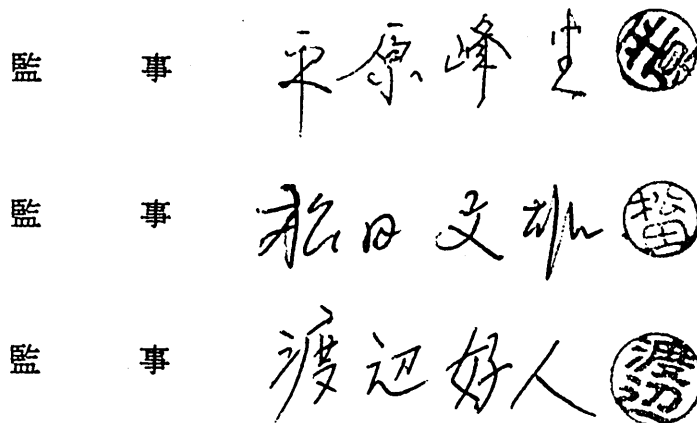 監事 平原峰生
監事 松田文雄 松田
監事 渡辺好人 渡辺